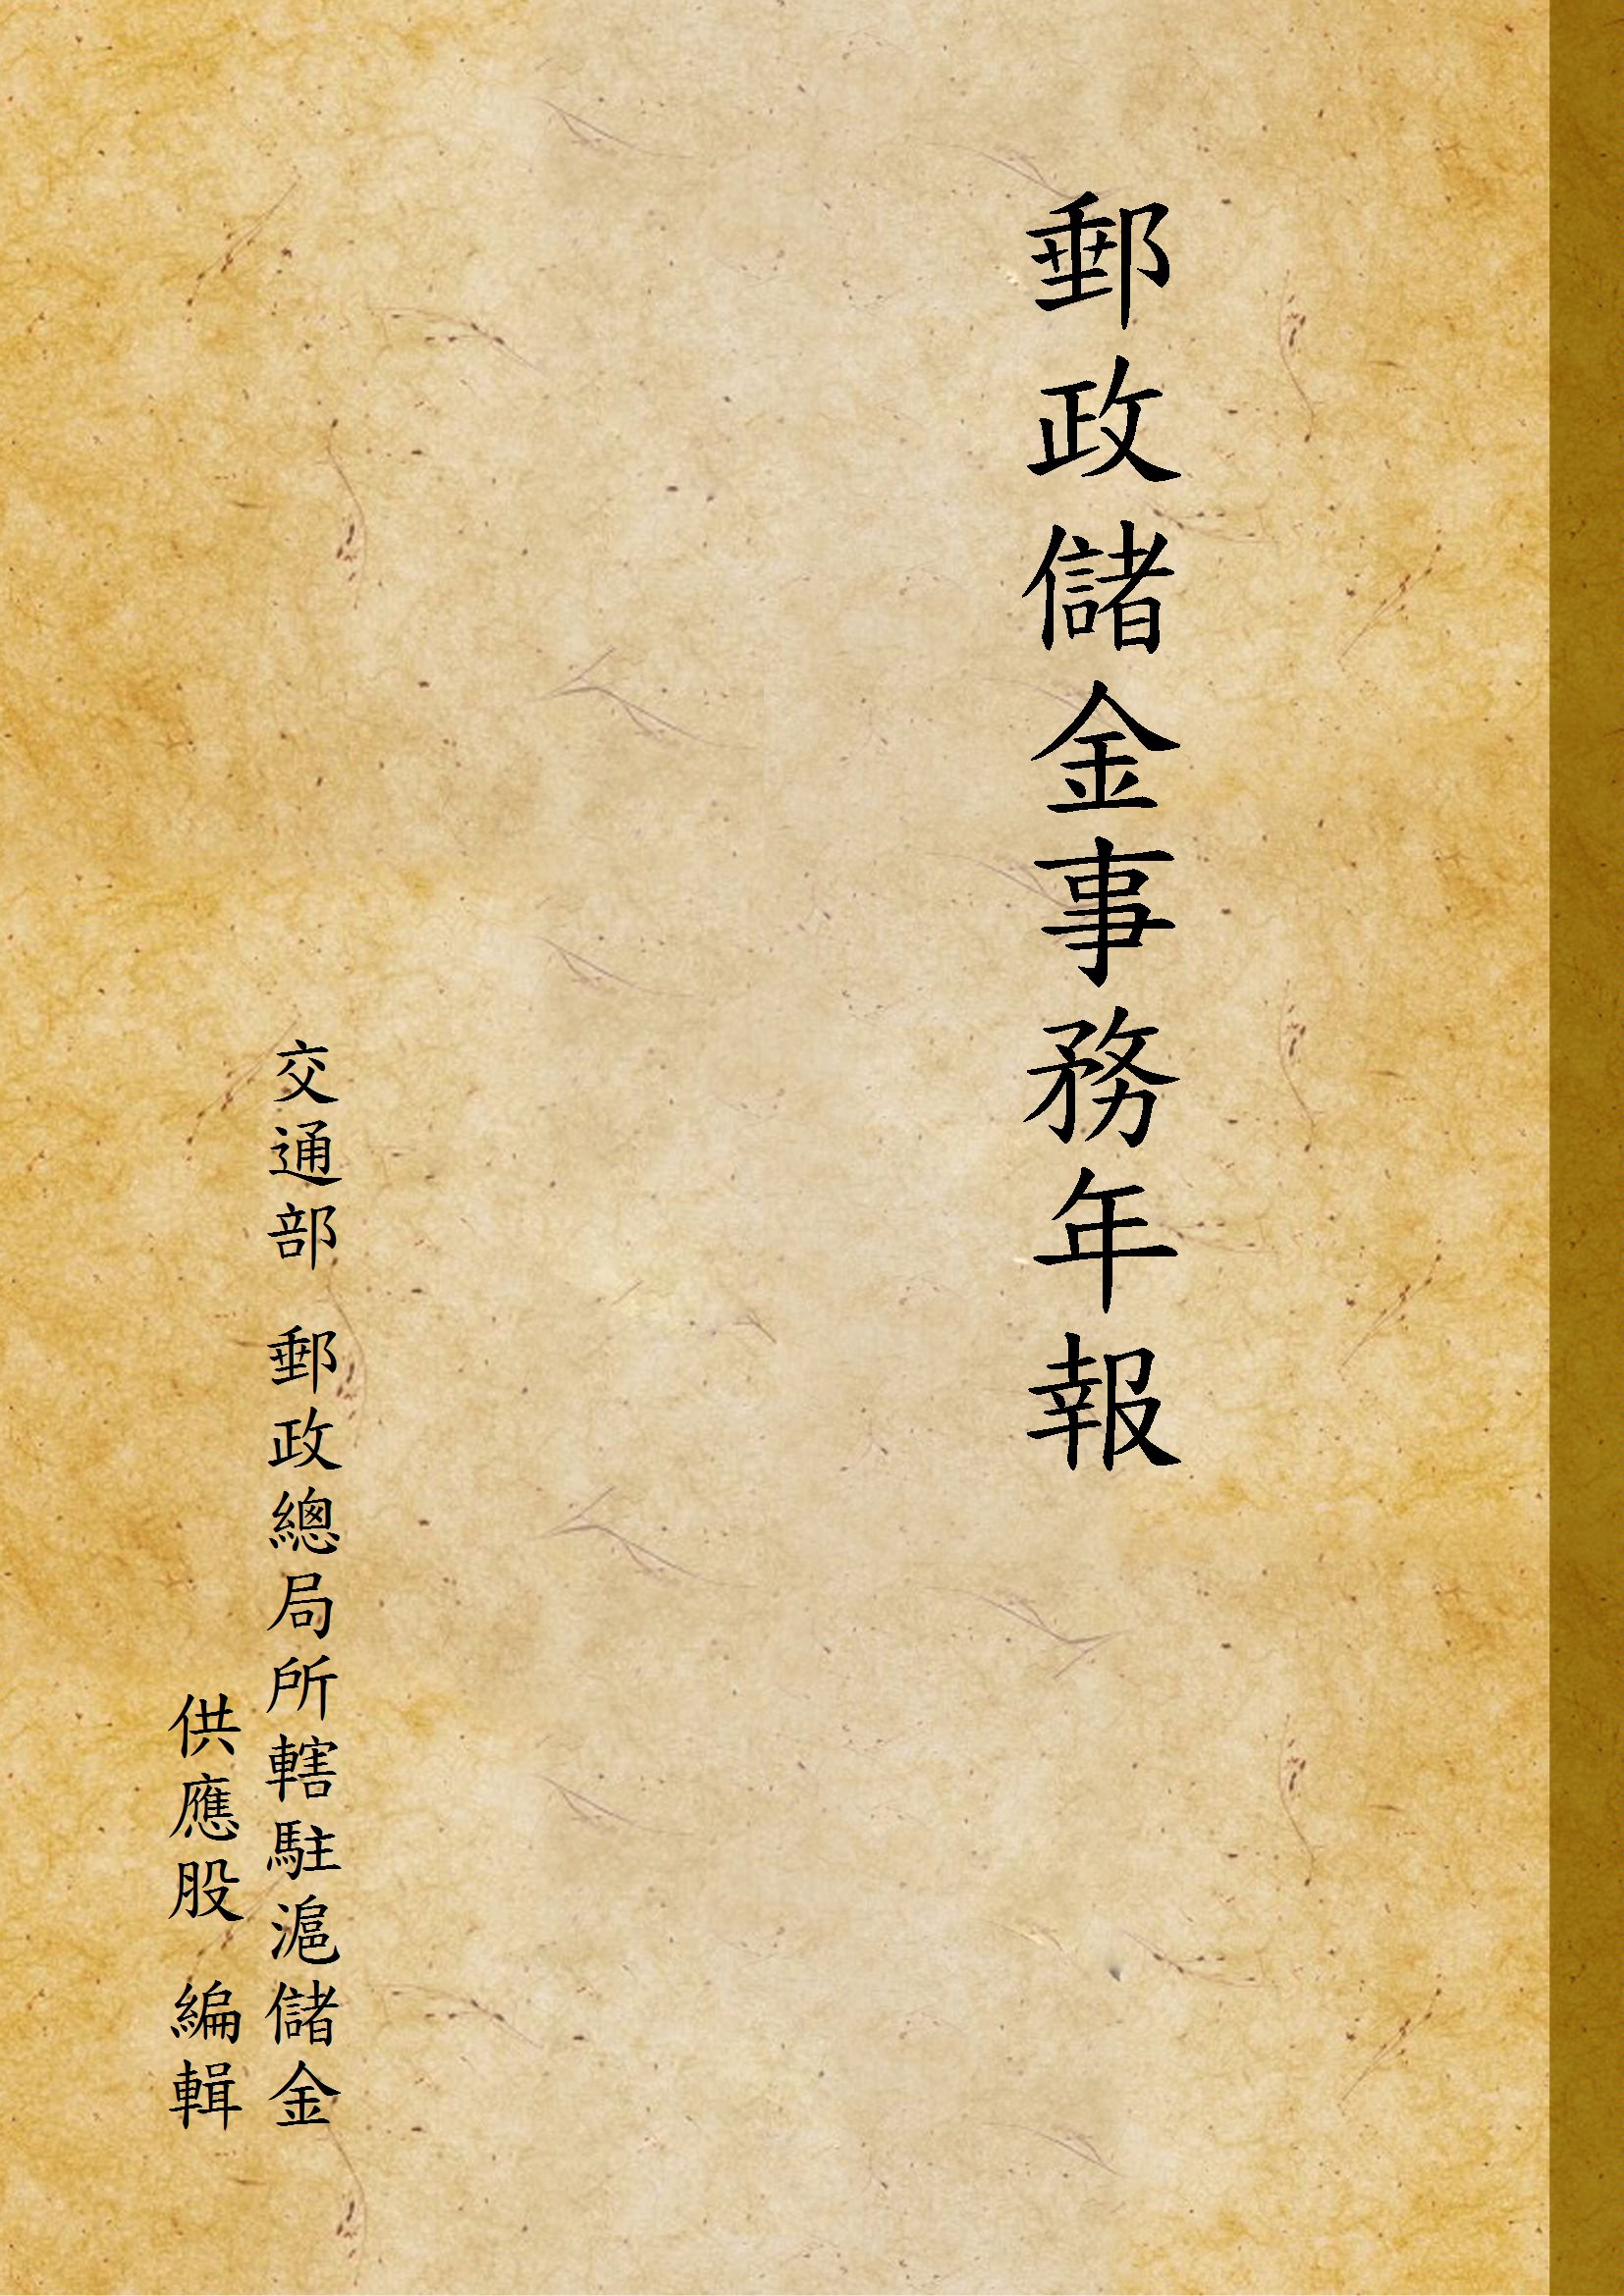 郵政儲金事務年報
交通部 郵政總局所轄駐滬儲金
供應股 編輯